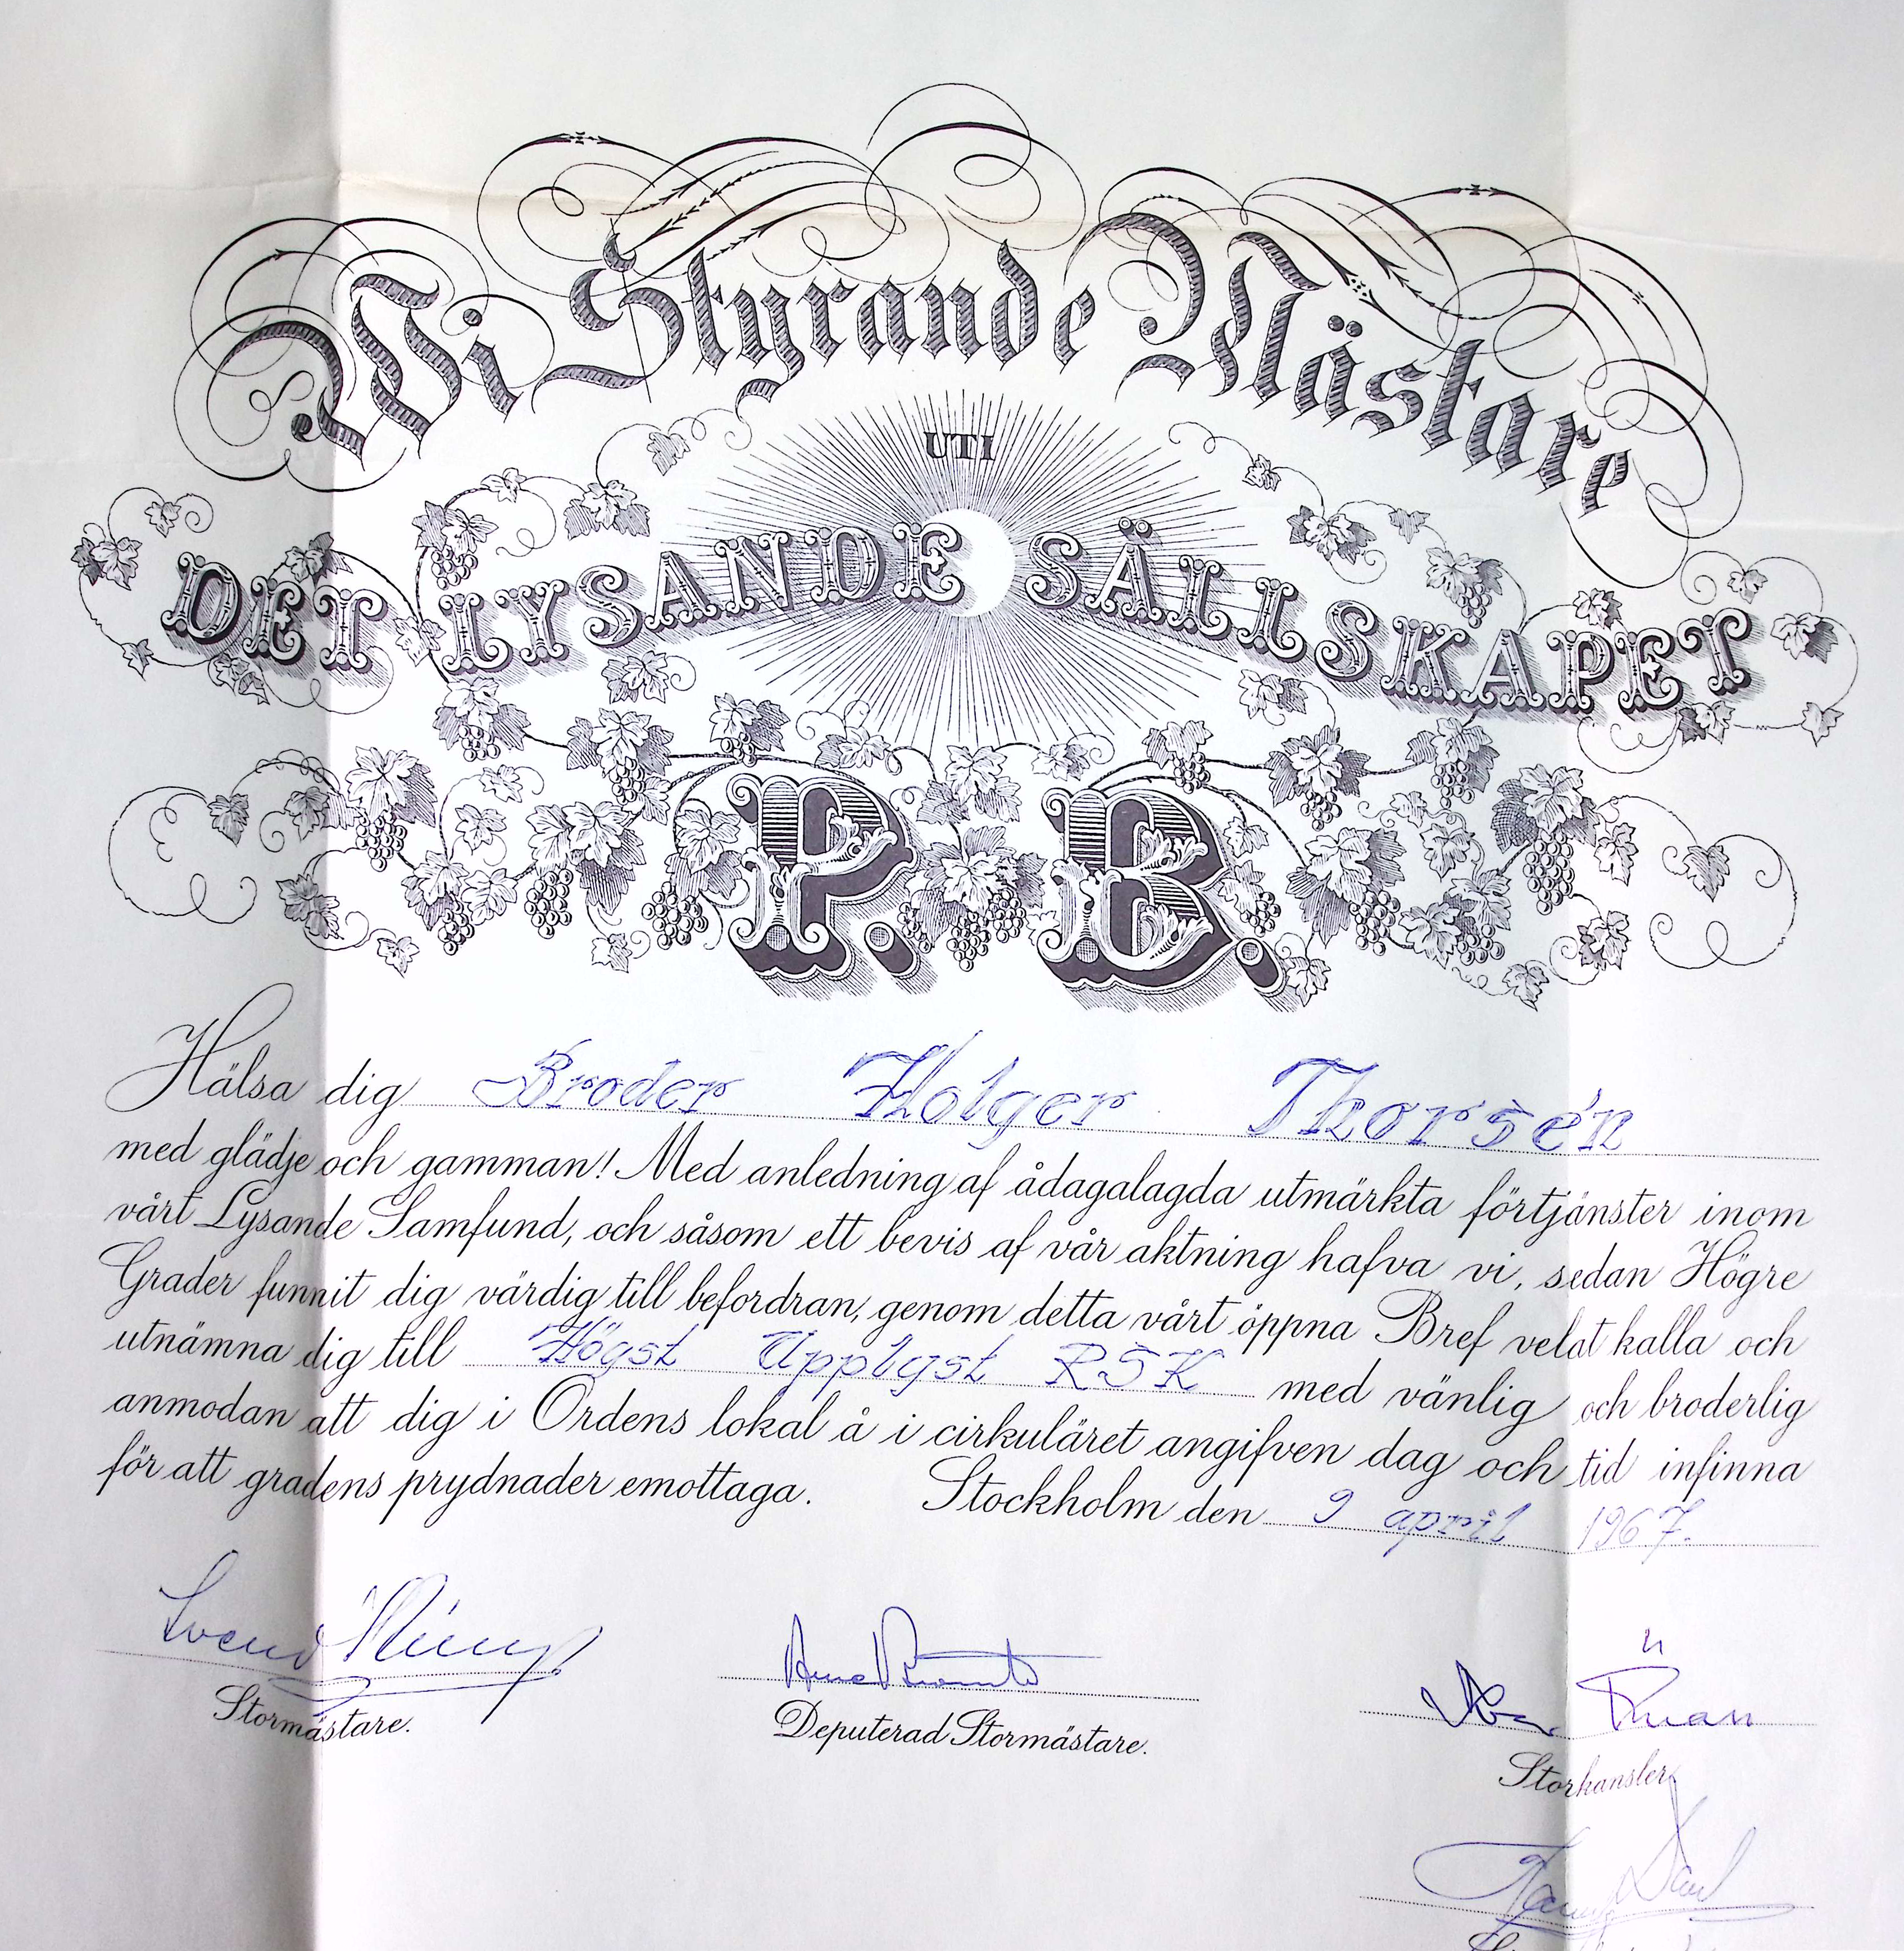 Wi Styrande Mästare
UTI
DET LYSANDE SÄLLSKAPET
P. B.
Hälsa dig Broder Holger Thorsén
med glädje och gamman! Med anledning af ådagalagda utmärkta förtjänster inom
vårt Lysande Samfund, och såsom ett bevis af vår aktning hafva vi, sedan Högre
Grader funnit dig värdig till befordran, genom detta vårt öppna Bref velat kalla och
utnämna dig till Högst Upplyst RSK med vänlig och broderlig
anmodan att dig i Ordens lokal å i cirkuläret angifven dag och tid infinna
för att gradens prydnader emottaga. Stockholm den 9 april 1967.
Stormästare.
Deputerad Stormästare.
Storkansler